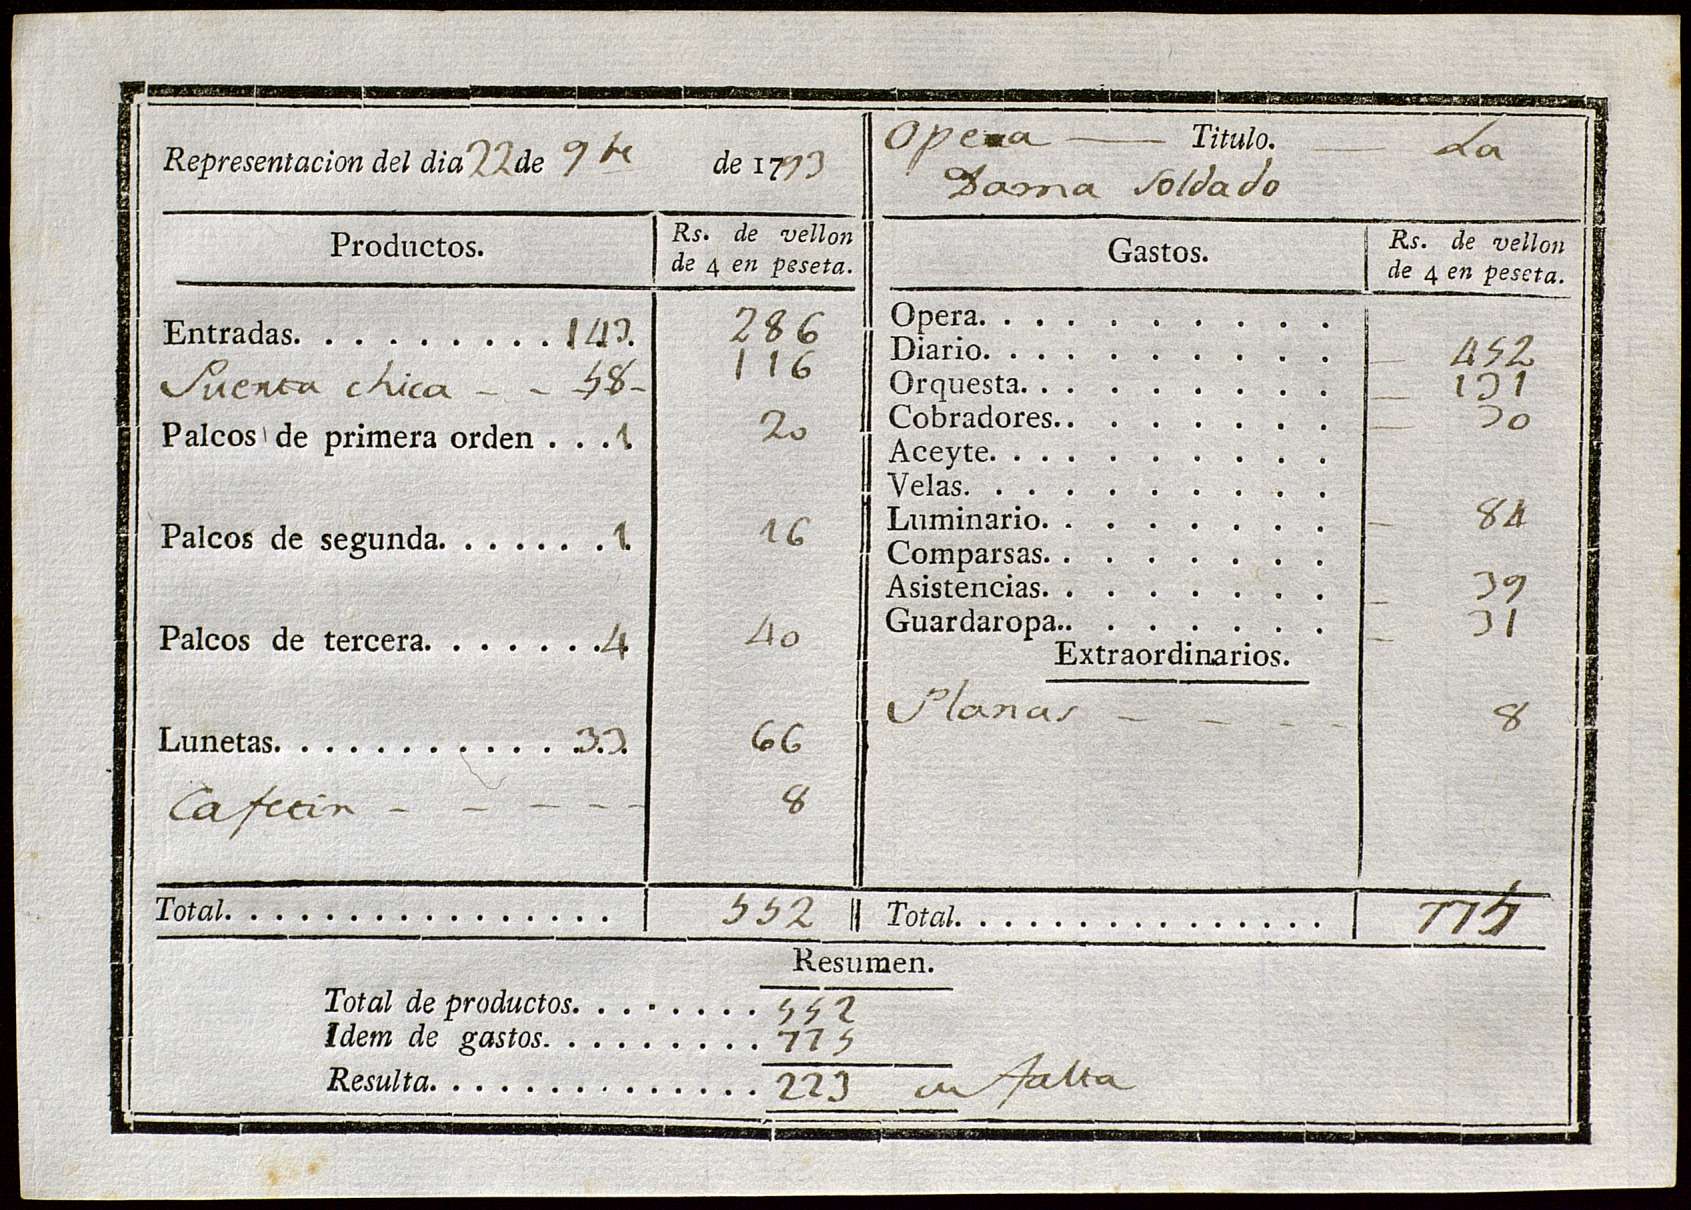 Representacion del dia 22 de 9bre de 1793
Opera — Titulo. — La
Dama Soldado
Productos. Rs. de vellon
de 4 en peseta.
Entradas. . . . . . . . . . 143. 286
Puerta chica - - 58 - 116
Palcos de primera orden . . . 1 20
Palcos de segunda. . . . . . . 1. 16
Palcos de tercera. . . . . . . 4 40
Lunetas. . . . . . . . . . . . 33. 66
Cafetin - - - - - 8
Total. . . . . . . . . . . . . . . . 552
Gastos. Rs. de vellon
de 4 en peseta.
Opera. . . . . . . . . . .
Diario. . . . . . . . . . . — 452
Orquesta. . . . . . . . . 131
Cobradores.. . . . . . . — 30
Aceyte. . . . . . . . . . —
Velas. . . . . . . . . . .
Luminario. . . . . . . . — 84
Comparsas. . . . . . . .
Asistencias. . . . . . . . — 39
Guardaropa.. . . . . . . — 31
Extraordinarios.
Planas - - - - 8
Total. . . . . . . . . . . . . . . 775
Resumen.
Total de productos. . . . . . . . 552
Idem de gastos. . . . . . . . . 775
Resulta. . . . . . . . . . . . . . 223 en falta